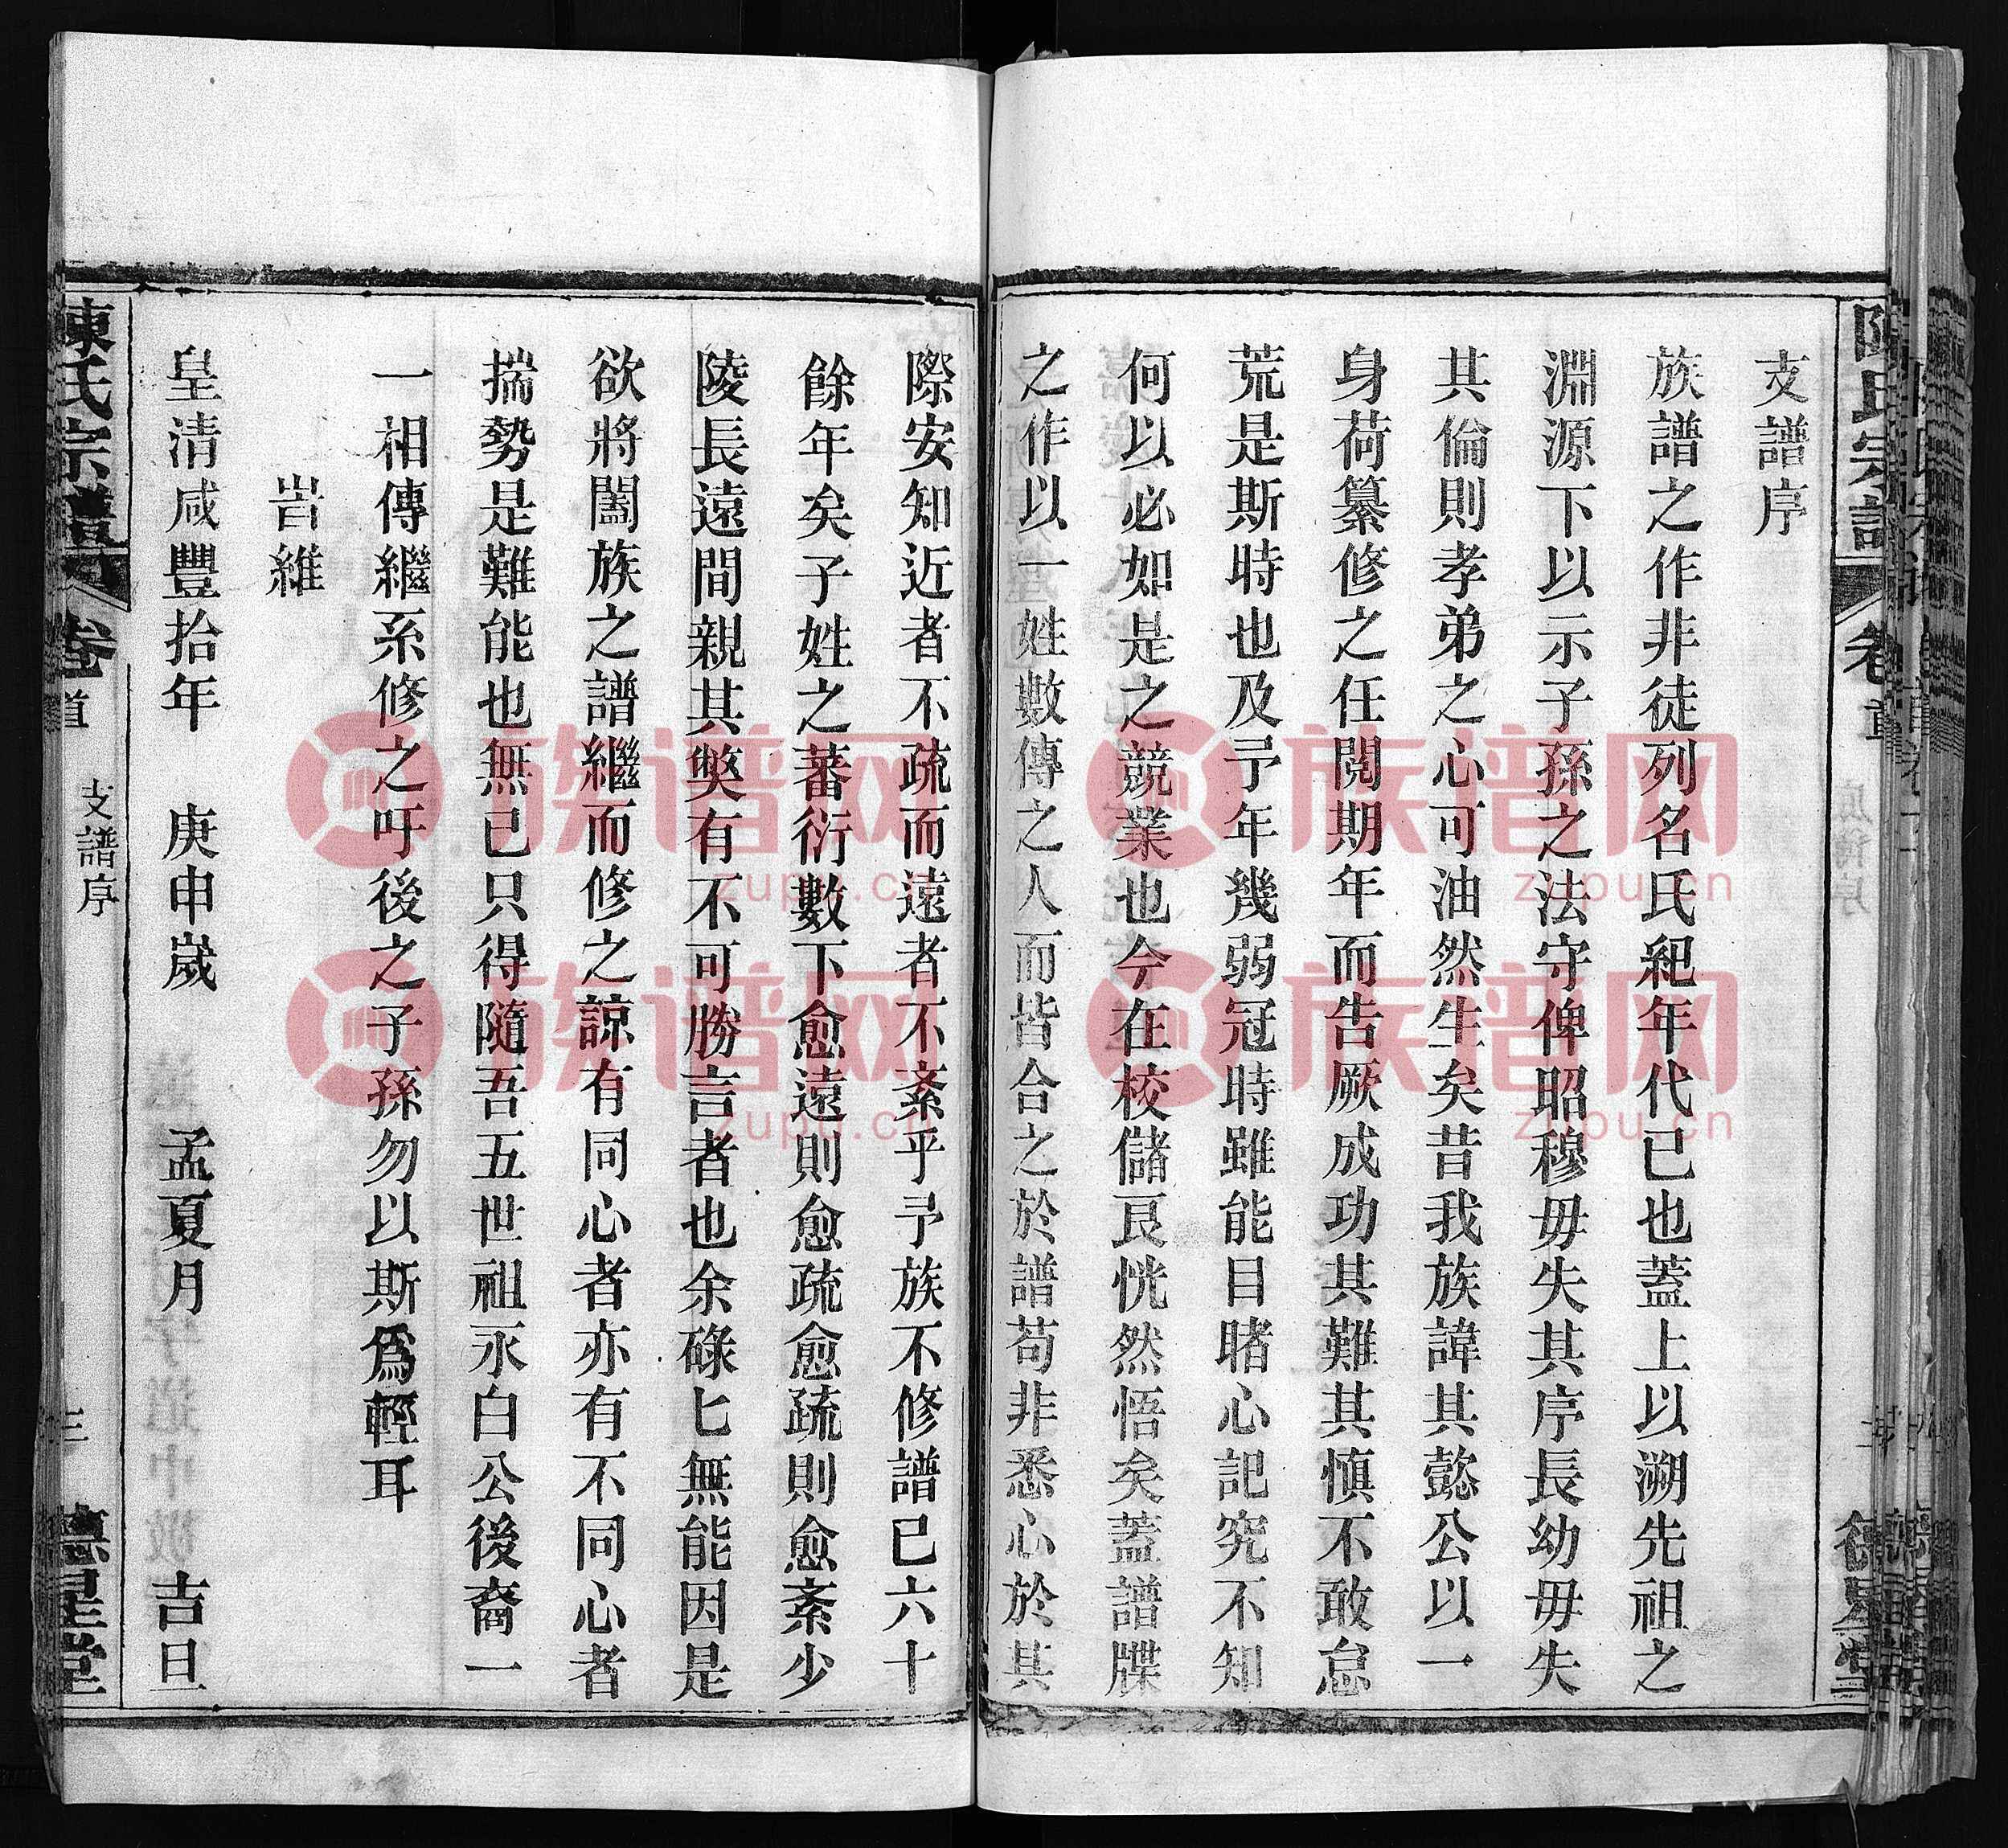 支譜序
族譜之作非徒列名氏紀年代已也蓋上以溯先祖之
淵源下以示子孫之法守俾昭穆毋失其序長幼毋失
其倫則孝弟之心可油然生矣昔我族諱其懿公以一
身荷纂修之任閱期年而告厥成功其難其慎不敢怠
荒是斯時也及予年幾弱冠時雖能目睹心記究不知
何以必如是之競業也今在校儲艮恍然悟矣蓋譜牒
之作以一姓數傳之人而皆合之於譜苟非悉心於其
際安知近者不疏而遠者不紊乎予族不修譜已六十
餘年矣子姓之蕃衍數下愈遠則愈疏愈疏則愈紊少
陵長遠間親其獘有不可勝言者也余碌匕無能因是
欲將闔族之譜繼而修之諒有同心者亦有不同心者
揣勢是難能也無已只得隨吾五世祖永白公後裔一
一相傳繼系修之吁後之子孫勿以斯爲輕耳
旹維
皇清咸豐拾年 庚申歲 孟夏月 吉旦
陳氏宗譜 卷首 支譜序 三 德星堂
族谱网
zupu.cn
族谱网
zupu.cn
族谱网
zupu.cn
族谱网
zupu.cn